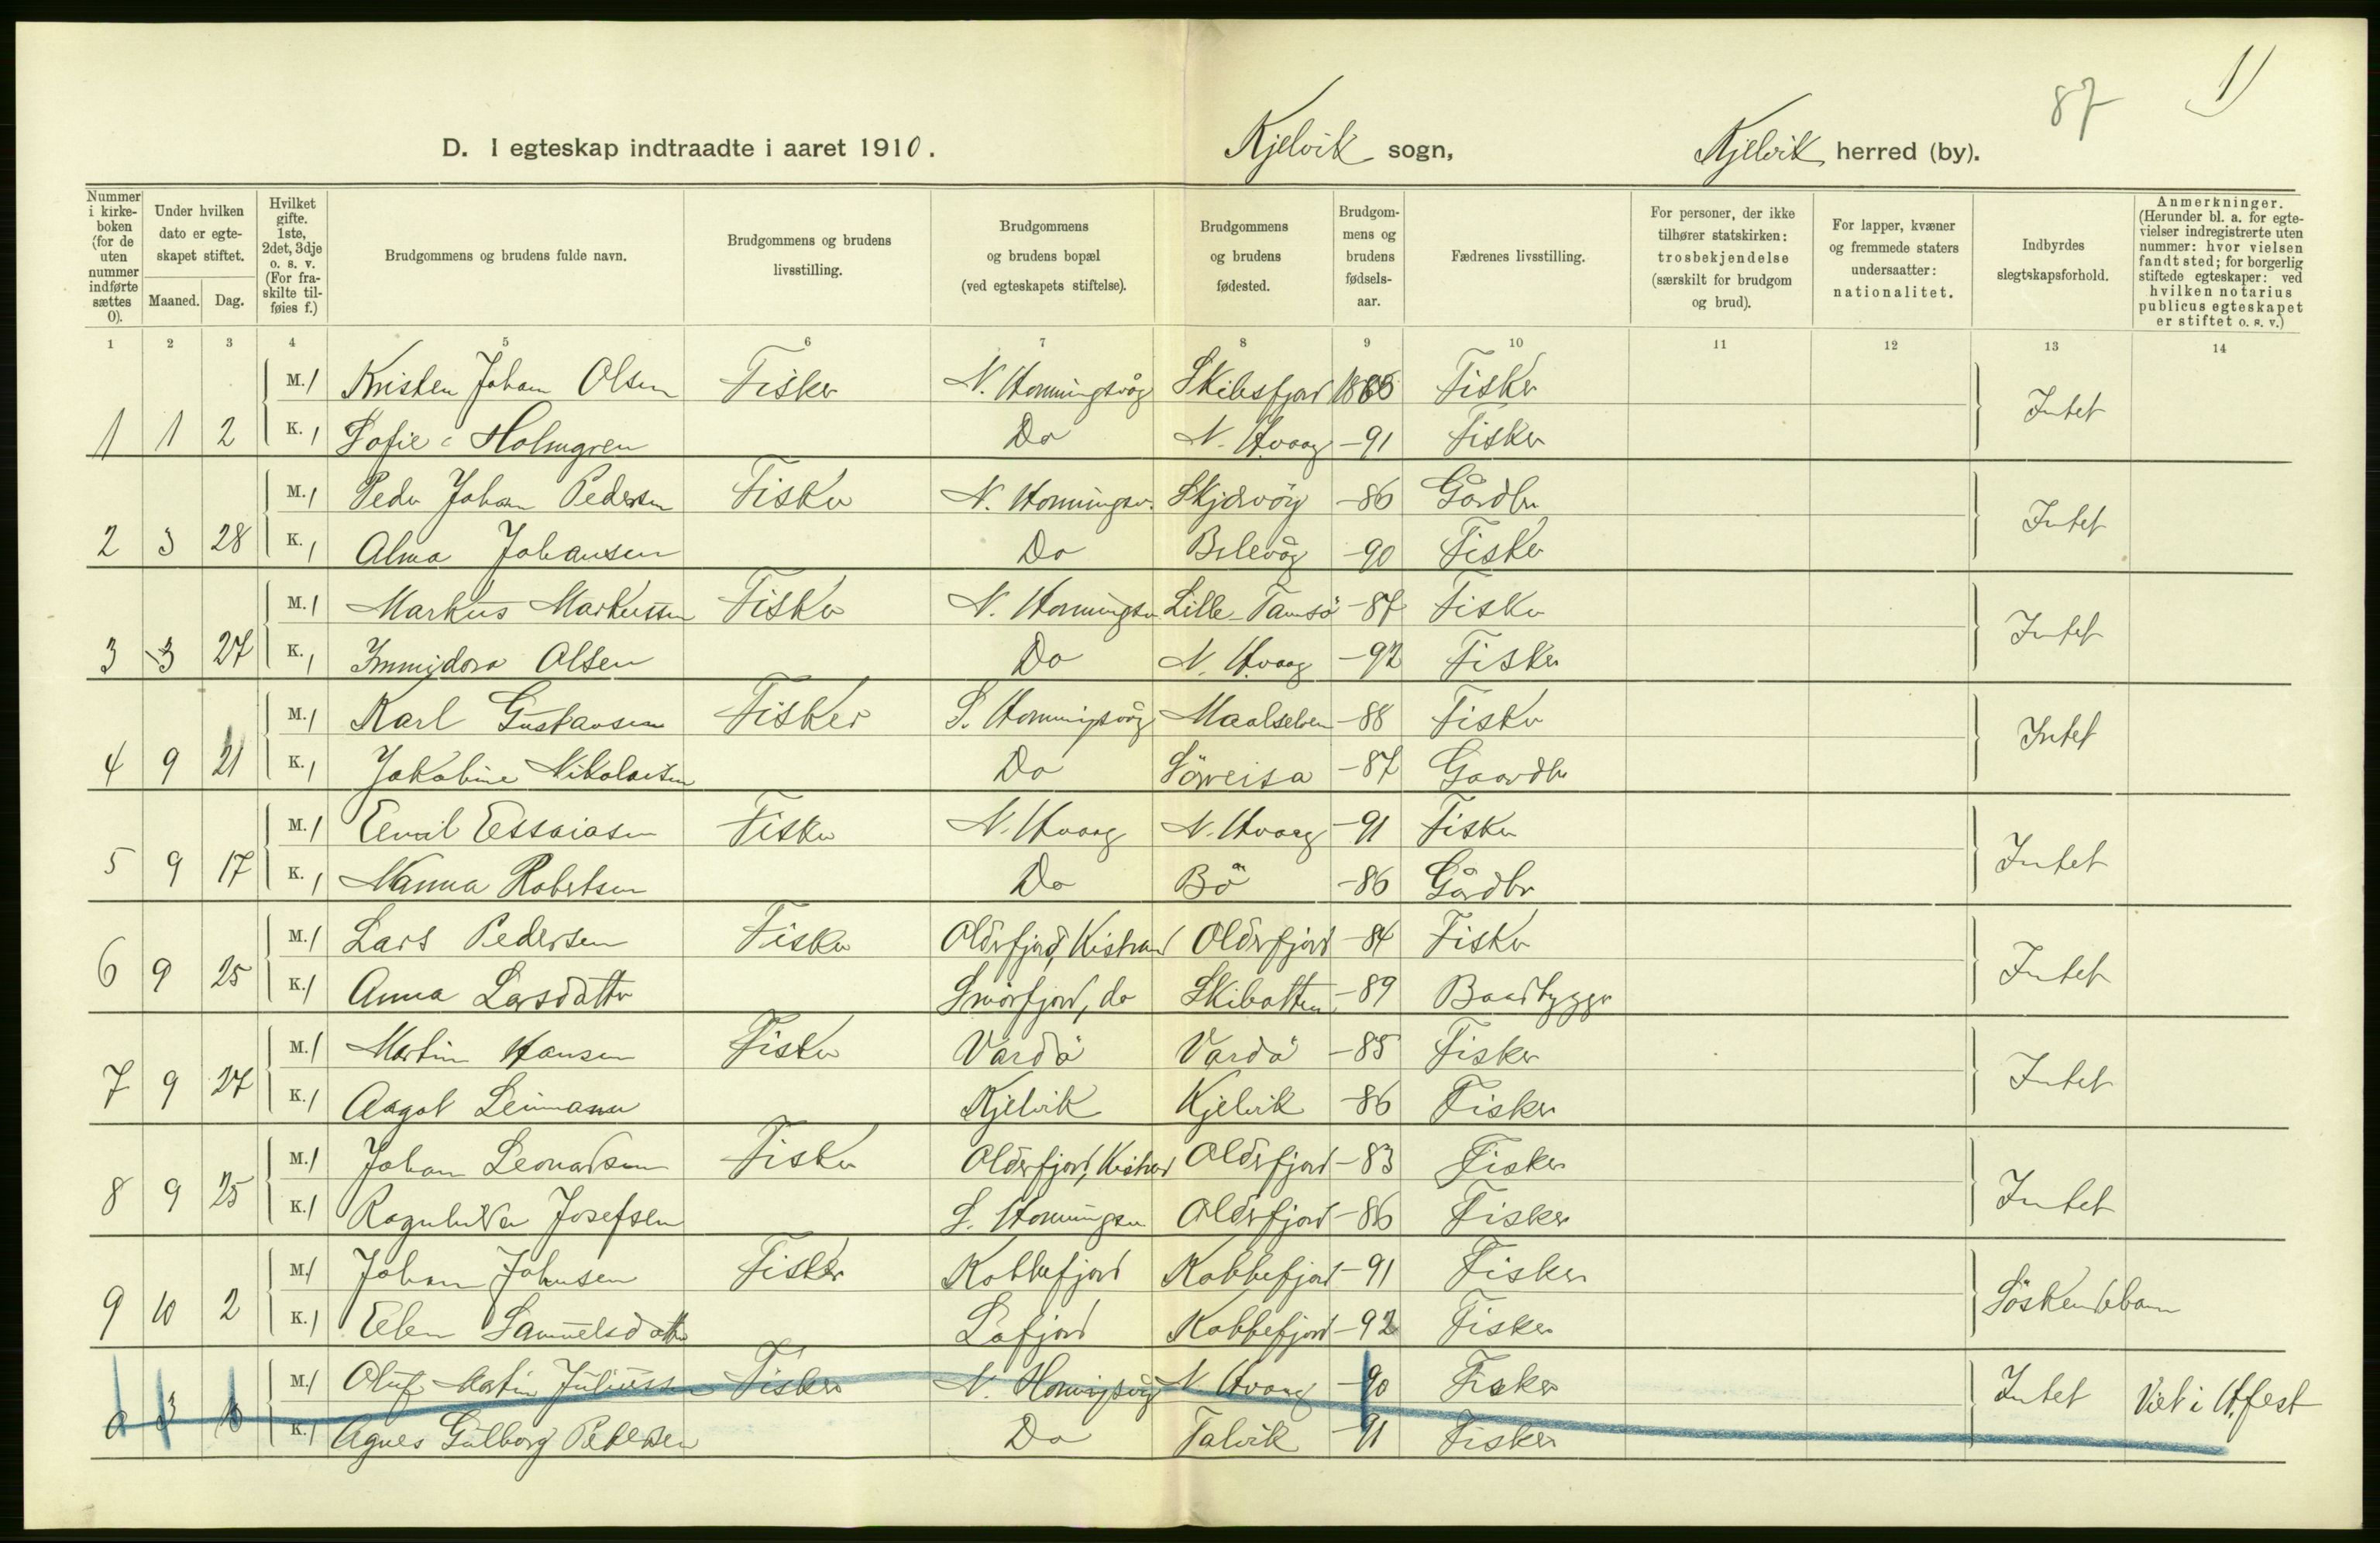 1)
87
D. I egteskap indtraadte i aaret 1910. Kjelvik sogn, Kjelvik herred (by).
Nummer i kirkeboken (for de uten nummer indførte sættes 0). Under hvilken dato er egteskapet stiftet. Maaned. Dag. Hvilket gifte. 1ste, 2det, 3dje o. s. v. (For fraskilte tilføies f.) Brudgommens og brudens fulde navn. Brudgommens og brudens livsstilling. Brudgommens og brudens bopæl (ved egteskapets stiftelse). Brudgommens og brudens fødested. Brudgommens og brudens fødselsaar. Fædrenes livsstilling. For personer, der ikke tilhører statskirken: trosbekjendelse (særskilt for brudgom og brud). For lapper, kvæner og fremmede staters undersaatter: nationalitet. Indbyrdes slegtskapsforhold. Anmerkninger. (Herunder bl. a. for egtevielser indregistrerte uten nummer: hvor vielsen fandt sted; for borgerlig stiftede egteskaper: ved hvilken notarius publicus egteskapet er stiftet o. s. v.)
1 2 3 4 5 6 7 8 9 10 11 12 13 14
M. 1 Kristen Johan Olsen Fisker N. Honningsvåg Skibsfjord Fisker Intet
1 1 2 K. 1 Sofie Holmgren Do N. Hvaag -91 Fisker
M. 1 Peder Johan Pedersen Fisker N. Honningsv. Skjervöy -86 Gårdbr Intet
2 3 28 K. 1 Alma Johansen Do -90 Fisker
M. 1 Markus Markussen Fisker N. Honningsv Lille-Tamsö -87 Fisker Intet
3 3 27 K. 1 Immidora Olsen Do N. Hvaag -92 Fisker
M. 1 Karl Gustavsen Fisker S. Honningsvåg Maalselven -88 Fisker Intet
4 9 21 K. 1 Jakobine Nikolaisen Do Sörreisa -87 Gaardbr
M. 1 Eemil Essaiasen Fisker N. Hvaag N. Hvaag -91 Fisker Intet
5 9 17 K. 1 Nanna Robertsen Do Bö -86 Gårdbr
M. 1 Lars Pedersen Fisker Olderfjord, Kistrand Olderfjord -84 Fisker Intet
6 9 25 K. 1 Anna Larsdatter Smörfjord, do Skibotten -89 Baadbygger
M. 1 Martin Hansen Fisker Vardö Vardö -85 Fisker Intet
7 9 27 K. 1 Aagot Leimann Kjelvik Kjelvik -86 Fisker
M. 1 Johan Leonardsen Fisker Olderfjord, Kistrand Olderfjord -83 Fisker Intet
8 9 25 K. 1 Josefsen S. Honningsv Olderfjord -86 Fisker
M. 1 Johan Johnsen Fisker Kobbefjord Kobbefjord -91 Fisker Söskendebarn
9 10 2 K. 1 Elen Samuelsdatter Lafjord Kobbefjord -92 Fisker
M. 1 Oluf Martin Juliussen Fisker N. Honningsvåg N. Hvaag -90 Fisker Intet Viet i H.fest
0 3 K. 1 Agnes Gulborg Petersen Do Talvik -91 Fisker